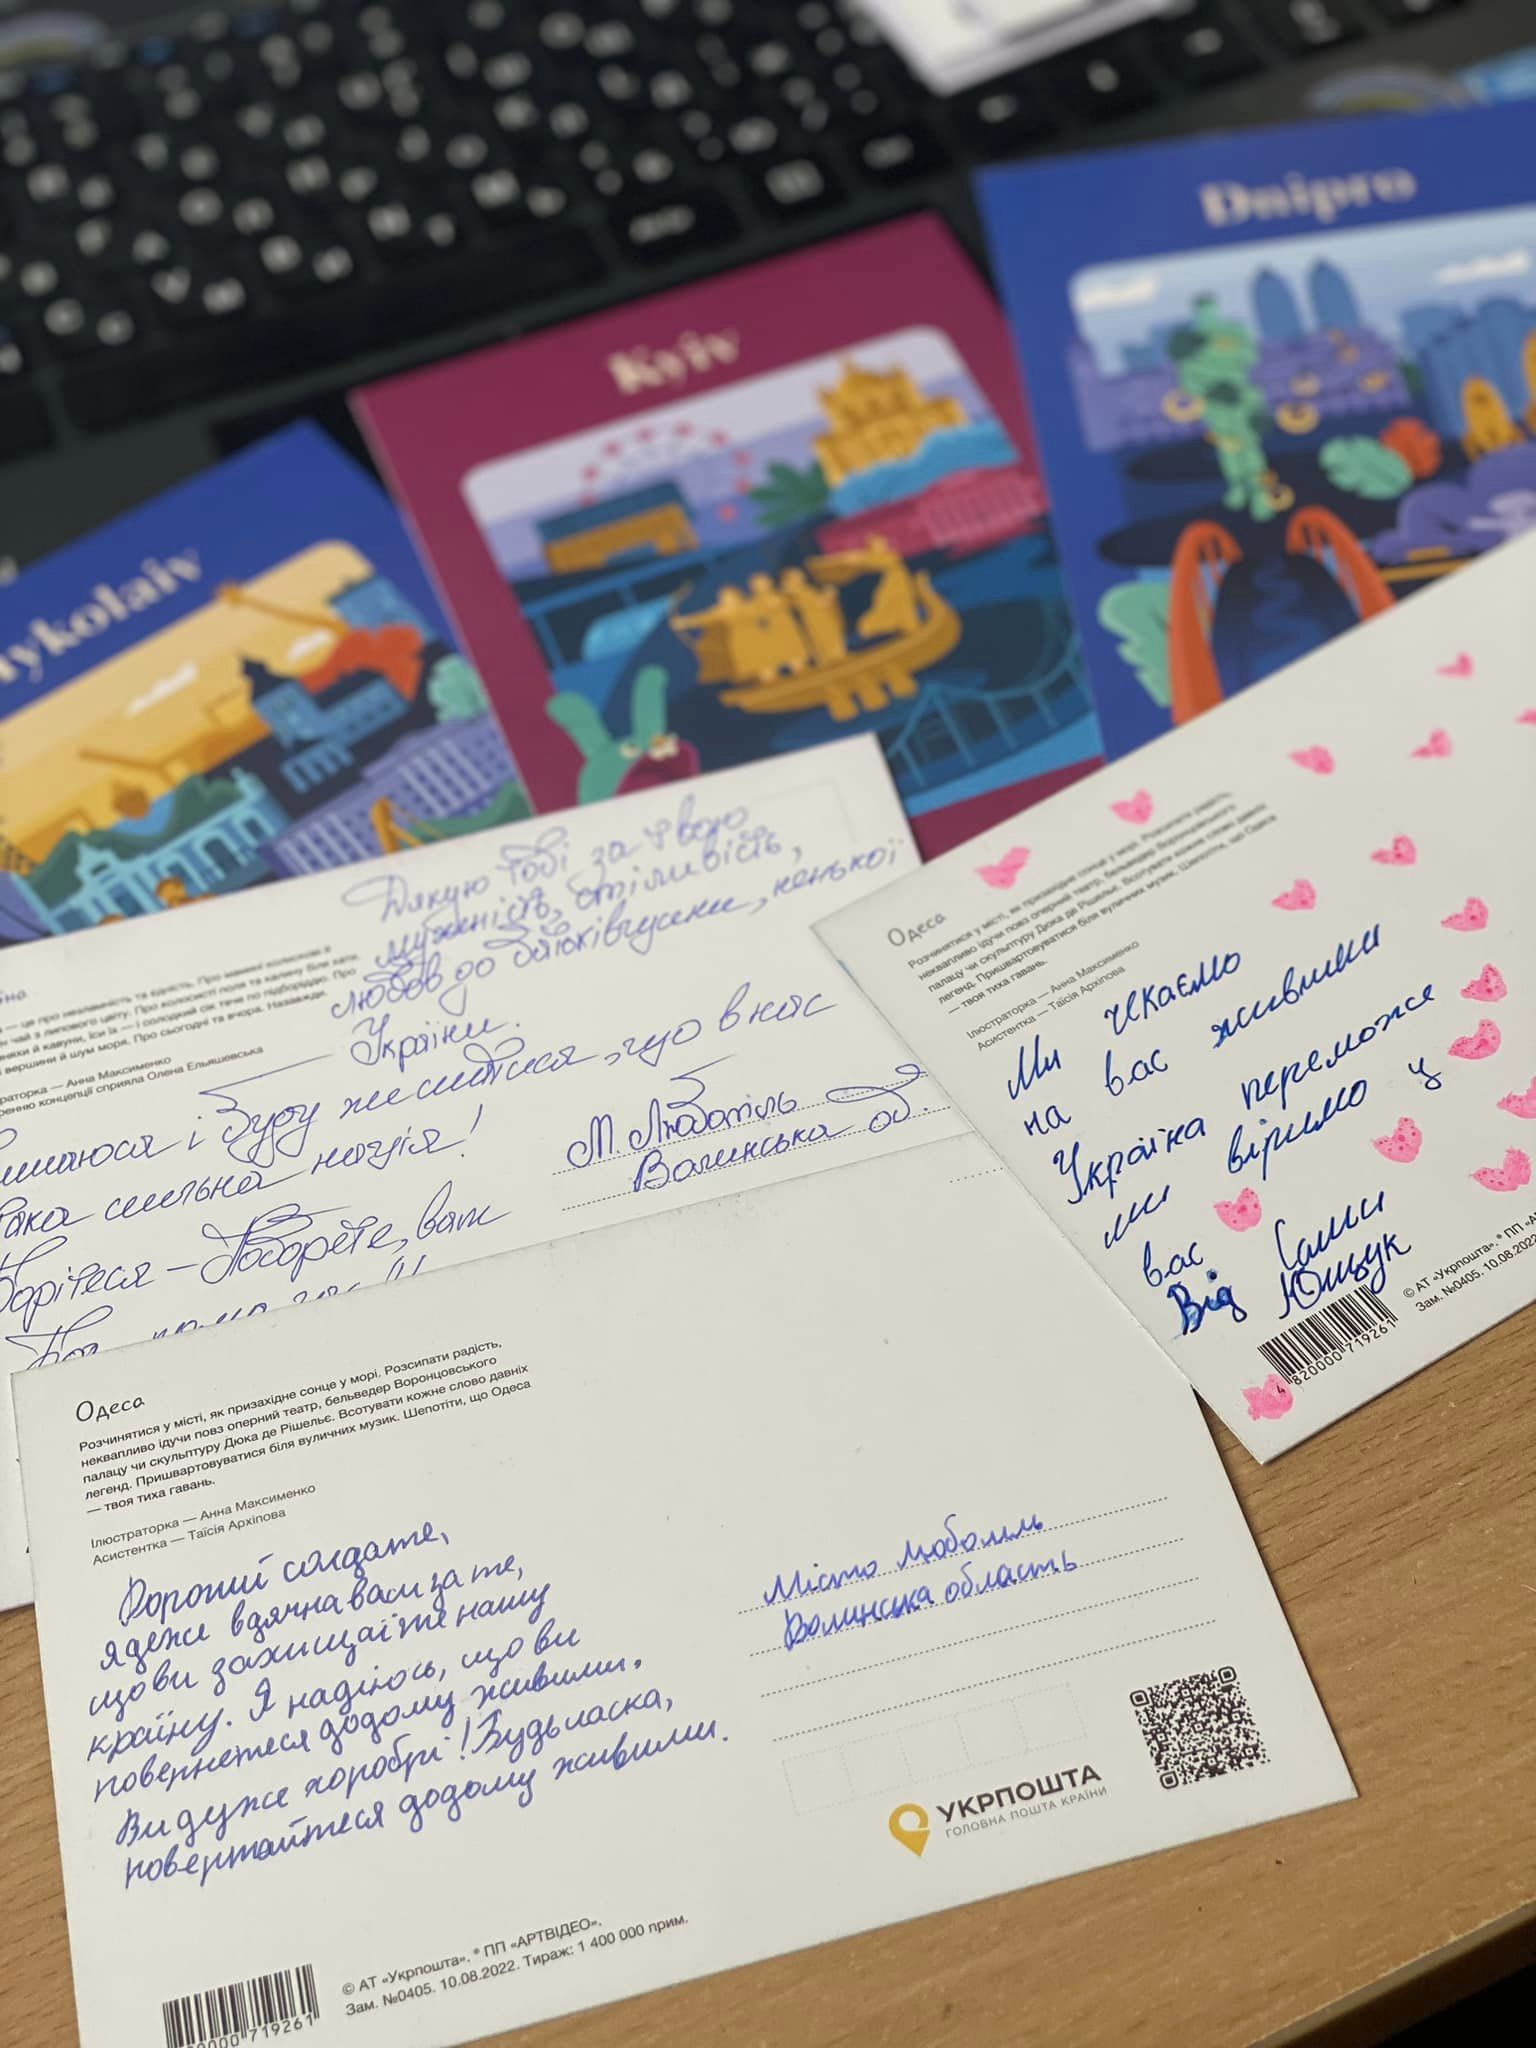 Dnipro
Kyiv
Mykolaiv
Дякую Тобі за твою
мужність, сміливість,
любов до Батьківщини, неньки
України.
і буду молитися, що в нас
така сильна нація!
Борітеся – Поборете, вам
Бог
м. Любомль
Волинська об.
— це про незламність та єдність. Про мамині колискові з
чай з липового цвіту. Про колосисті поля та калину біля хати.
й кавуни, їси їх — і солодкий сік тече по підборіддю. Про
вершини й шум моря. Про сьогодні та вчора. Назавжди.
раторка — Анна Максименко
ренню концепції сприяла Олена Ельяшевська
Одеса
Розчинятися у місті, як призахідне сонце у морі. Розсипати радість,
неквапливо ідучи повз оперний театр, бельведер Воронцовського
палацу чи скульптуру Дюка де Рішельє. Всотувати кожне слово давніх
легенд. Пришвартовуватися біля вуличних музик. Шепотіти, що Одеса
— твоя тиха гавань.
Ілюстраторка — Анна Максименко
Асистентка — Таїсія Архіпова
Ми чекаємо
на вас живими
Україна переможе
ми віримо у
вас
Від Саши
Ющук
4 820000 719261
© АТ «Укрпошта». ® ПП «АРТ
Зам. №0405. 10.08.2022.
Одеса
Розчинятися у місті, як призахідне сонце у морі. Розсипати радість,
неквапливо ідучи повз оперний театр, бельведер Воронцовського
палацу чи скульптуру Дюка де Рішельє. Всотувати кожне слово давніх
легенд. Пришвартовуватися біля вуличних музик. Шепотіти, що Одеса
— твоя тиха гавань.
Ілюстраторка — Анна Максименко
Асистентка — Таїсія Архіпова
Дорогий солдате,
я дуже вдячна вам за те,
що ви захищаїте нашу
країну. Я надіюсь, що ви
повернетеся додому живими.
Ви дуже хоробрі! Будь ласка,
повертайтеся додому живими.
Місто Любомль
Волинська область
УКРПОШТА
ГОЛОВНА ПОШТА КРАЇНИ
© АТ «Укрпошта». ® ПП «АРТВІДЕО».
Зам. №0405. 10.08.2022. Тираж: 1 400 000 прим.
20000 719261